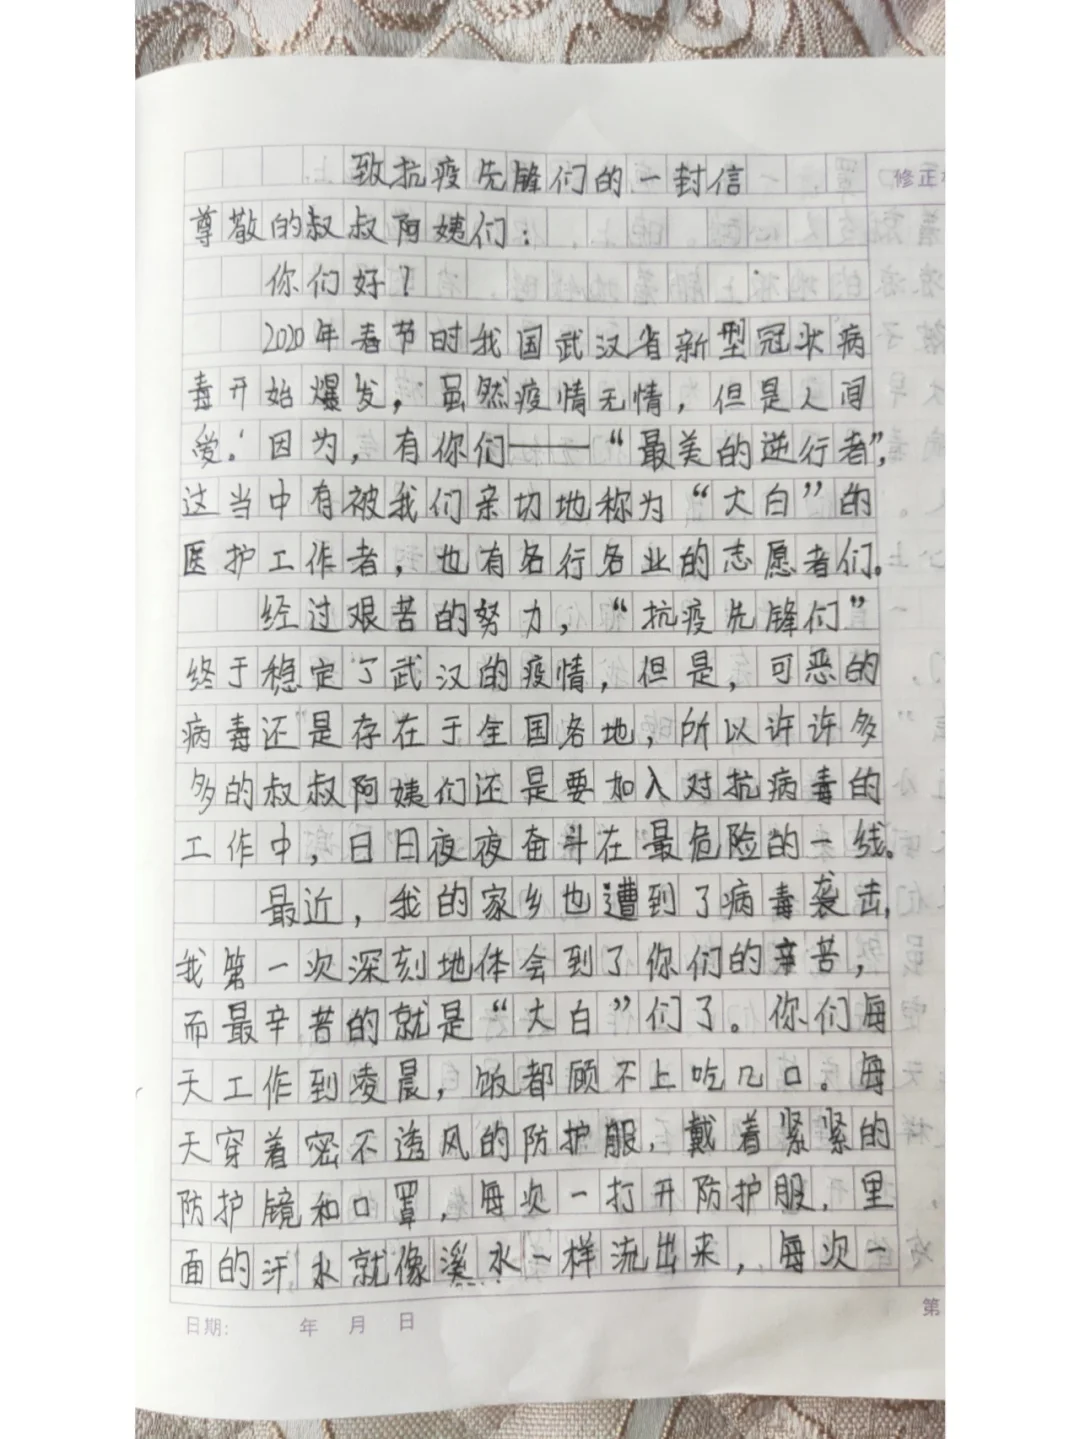 致抗疫先锋们的一封信
修正
尊敬的叔叔阿姨们：
你们好？
2020年春节时我国武汉省新型冠状病
毒开始爆发，虽然疫情无情，但是人间
爱.因为，有你们——“最美的逆行者”，
这当中有被我们亲切地称为“大白”的
医护工作者，也有各行各业的志愿者们。
经过艰苦的努力，“抗疫先锋们”
终于稳定了武汉的疫情，但是，可恶的
病毒还是存在于全国各地，所以许许多
多的叔叔阿姨们还是要加入对抗病毒的
工作中，日日夜夜奋斗在最危险的一线。
最近，我的家乡也遭到了病毒袭击，
我第一次深刻地体会到了你们的辛苦，
而最辛苦的就是“大白”们了。你们每
天工作到凌晨，饭都顾不上吃几口。每
天穿着密不透风的防护服，戴着紧紧的
防护镜和口罩，每次一打开防护服，里
面的汗水就像溪水一样流出来，每次一
日期： 年 月 日
第